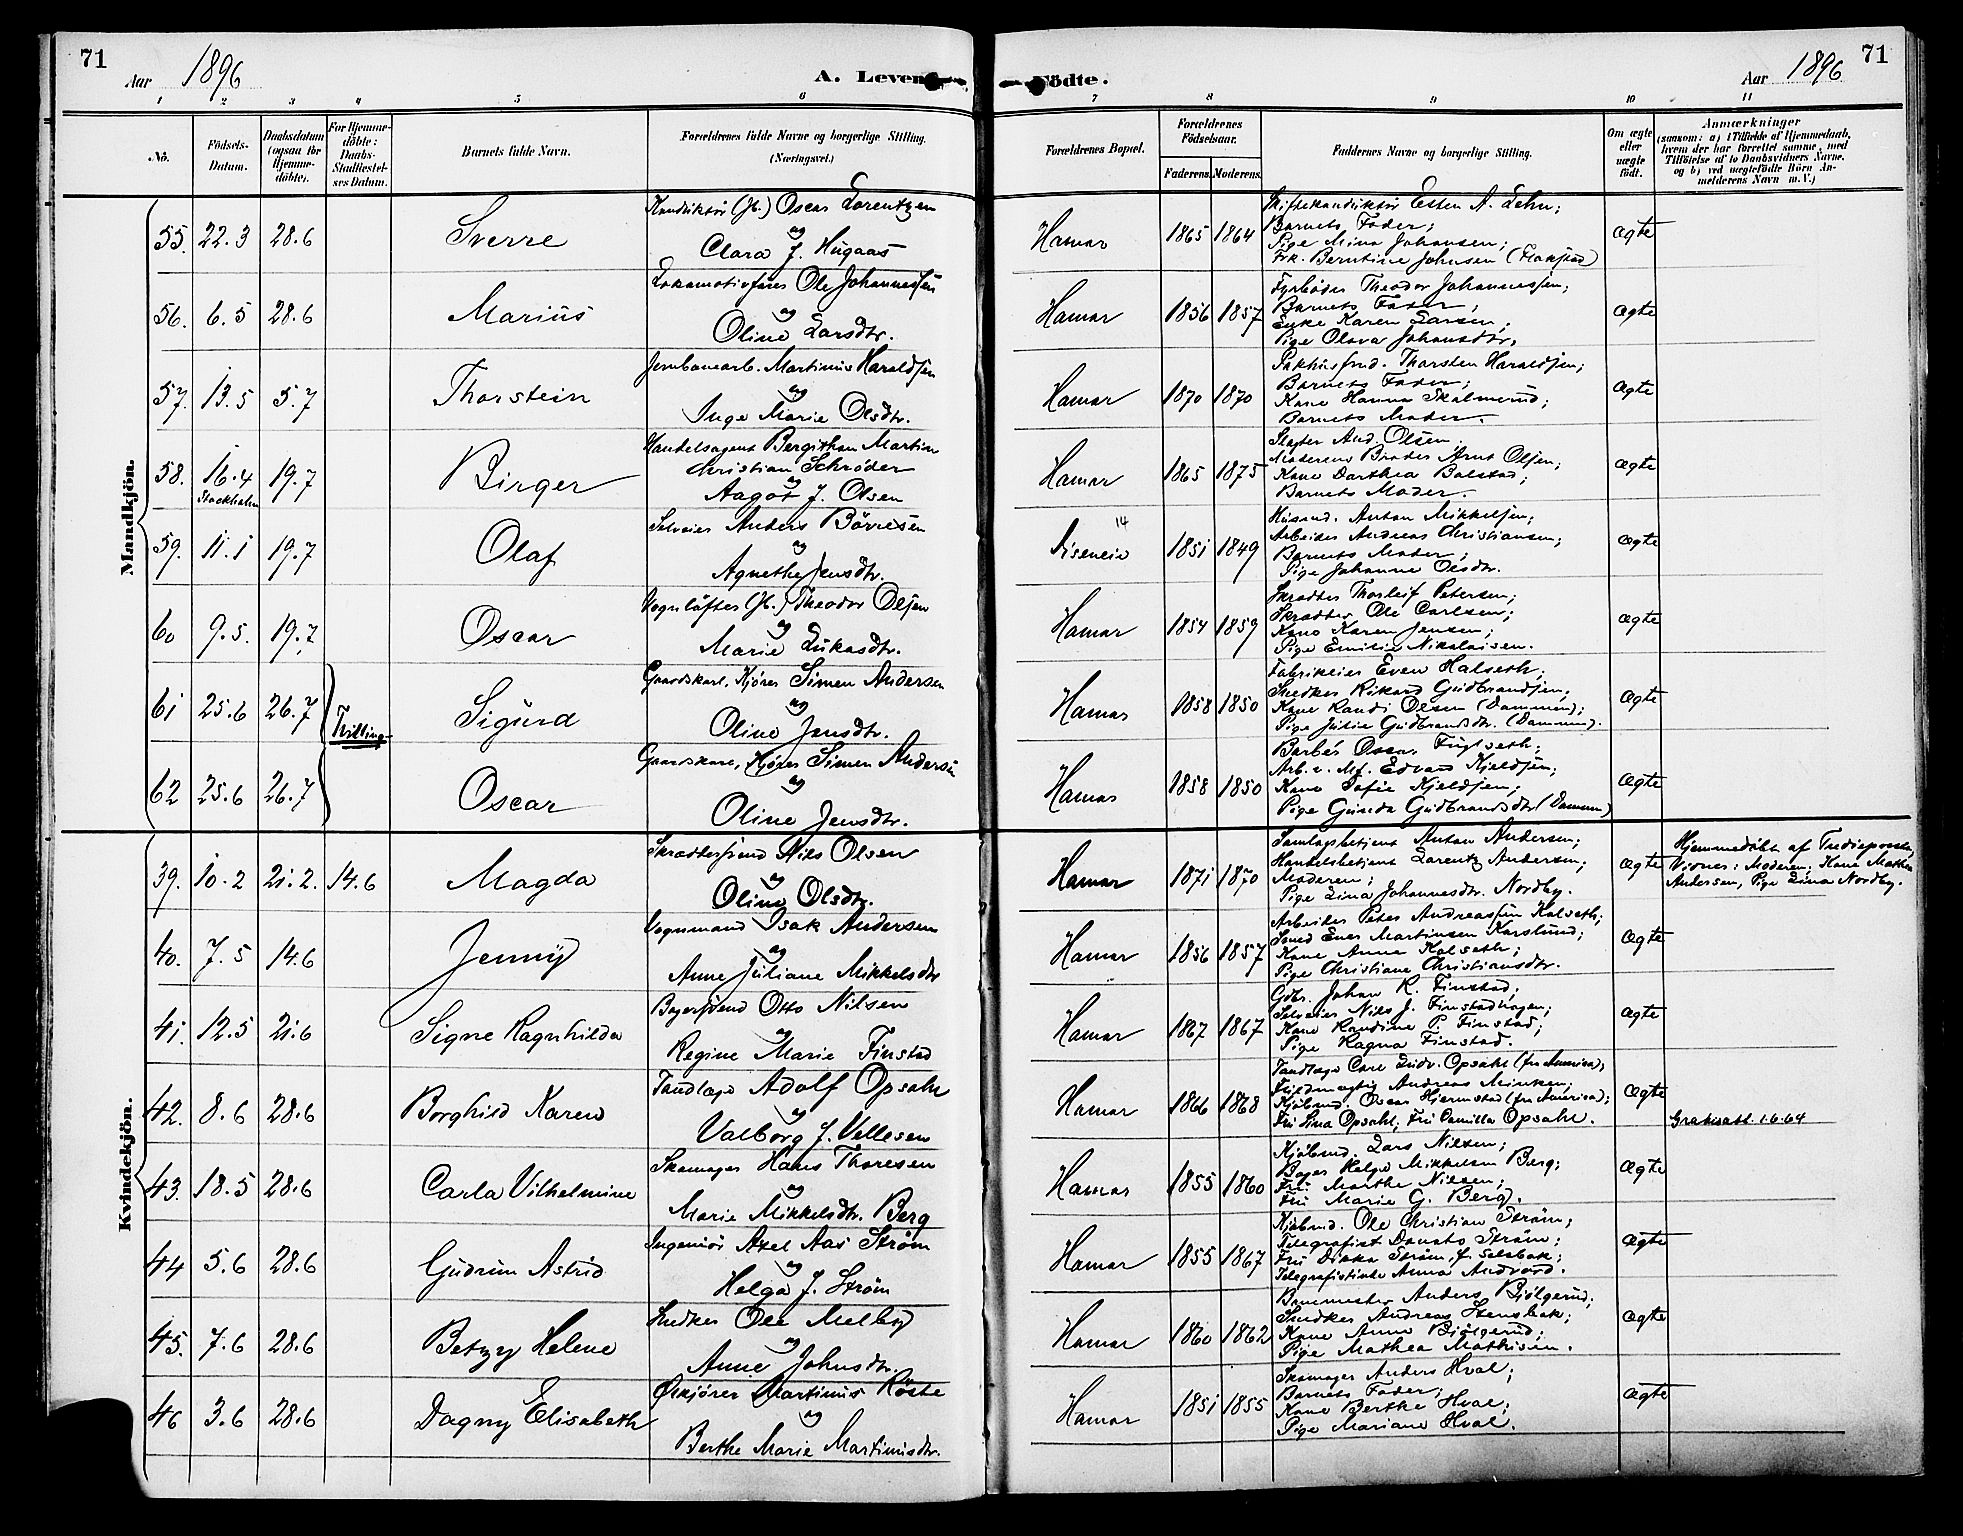 71
Aar 1896
A. Levende
Födte.
Aar 1896
71
1 2 3 4 5 6 7 8 9 10 11
No.
Födsels-Datum.
Daabsdatum (ogsaa for Hjemme-döbte).
For Hjemme-döbte: Daabs-Stadfæstel-ses Datum.
Barnets fulde Navn.
Forældrenes fulde Navne og borgerlige Stilling. (Næringsvei.)
Forældrenes Bopæl.
Forældrenes Födselsaar.
Faderens. Moderens.
Faddernes Navne og borgerlige Stilling.
Om ægte eller uægte födt.
Anmærkninger
(saasom: a) i Tilfælde af Hjemmedaab, hvem der har forrettet samme, med Tilföielse af to Daabsvidners Navne, og b) ved uægtefödte Börn An-melderens Navn m. V.)
Mandkjön.
55. 22.3 28.6 Sverre
Konduktør (Jb.) Oscar Lorentzen
og
Clara J. Hugaas
Hamar 1865 1864
Skiftekonduktør Esten A. Lehn;
Barnets Fader;
Pige Mina Johansen;
Frk. Berntine Johnsen (Flakstad)
ægte
56. 6.5 28.6 Marius
Lokomotivfører Ole Johannessen
og
Oline Larsdtr.
Hamar 1856 1857
Fyrbøder Theodor Johannessen;
Barnets Fader;
Enke Karen Larsen;
Pige Olava Johansdtr.
ægte
57. 13.5 5.7 Thorstein
Jernbanearb. Martinus Haraldsen
og
Inge Marie Olsdtr.
Hamar 1870 1870
Pakhusfmd. Thorsten Haraldsen;
Barnets Fader;
Kone Hanna Skalmerud;
Barnets Moder.
ægte
58. 16.4 Stockholm 19.7 Birger
Handelsagent Bergithon Martin
Christian Schrøder
og
Aagot J. Olsen
Hamar 1865 1875
Slagter And. Olsen.
Moderens Broder Arnt Olsen;
Kone Dorthea Bolstad;
Barnets Moder.
ægte
59. 11.1 19.7 Olaf
Selveier Anders Börresen
og
Agnethe Jensdtr.
Diseneie 14 1851 1849
Husmd. Anton Mikkelsen;
Arbeider Andreas Christiansen;
Barnets Moder;
Pige Johanne Olsdtr.
ægte
60 9.5. 19.7 Oscar
Vognløfter (Jb.) Theodor Olsen
og
Marie Lukasdtr.
Hamar 1854 1859
Skrædder Thorleif Petersen;
Skrædder Ole Carlsen;
Kone Karen Jensen;
Pige Emilie Nikolaisen.
ægte
61 25.6 26.7 Tvilling Sigurd
Gaardskarl, Kjører Simen Andersen
og
Oline Jensdtr.
Hamar 1858 1850
Fabrikeier Even Halseth;
Snedker Rikard Gudbrandsen;
Kone Randi Olsen (Dammen);
Pige Julie Gudbrandsdtr. (Dammen).
ægte
62 25.6 26.7 Oscar
Gaardskarl, Kjører Simen Andersen
og
Oline Jensdtr.
Hamar 1858 1850
Barbér Oscar Fuglseth;
Arb. v. Mf. Edvard Kjeldsen;
Kone Sofie Kjeldsen;
Pige Gunda Gudbrandsdtr (Dammen)
ægte
Kvindekjön.
39. 10.2 21.2. 14.6 Magda
Skræddersvend Nils Olsen
og
Oline Olsdtr.
Hamar 1871 1870
Samlagsbetjent Anton Andersen;
Handelsbetjent Lorentz Andersen;
Moderen;
Pige Lina Johannesdtr. Nordby.
ægte
Hjemmedøbt af Tredieprest,
Vidner: Moderen, Kone Mathea
Andersen, Pige Lina Nordby.
40. 7.5 14.6 Jenny
Vognmand Isak Andersen
og
Anne Juliane Mikkelsdtr
Hamar 1856 1857
Arbeider Peter Andreassen Kalseth;
Smed Even Martinsen Karslund;
Kone Anna Kalseth;
Pige Christiane Christiansdtr.
ægte
41. 12.5 21.6 Signe Ragnhilda
Bagersvend Otto Nilsen
og
Regine Marie Finstad
Hamar 1867 1867
Gdbr. Johan R. Finstad;
Selveier Nils J. Finstadhagen;
Kone Randine P. Finstad;
Pige Ragna Finstad.
ægte
42. 8.6 28.6 Borghild Karen
Tandlæge Adolf Opsahl
og
Valborg J. Vellesen
Hamar 1866 1868
Tandlæge Carl Ludv. Opsahl (fra America);
Fuldmægtig Andreas Minken;
Kjøbmd. Oscar Hjermstad (fra America);
Fru Lina Opsahl; Fru Camilla Opsahl.
ægte
Gratisatt. 1.6.64
43. 18.5 28.6 Carla Vilhelmine
Skomager Hans Thoresen
og
Marie Mikkelsdtr. Berg
Hamar 1855 1860
Kjøbmd. Lars Nilsen;
Bager Helge Mikkelsen Berg;
Fru Marthe Nilsen;
Fru Marie G. Berg.
ægte
44 5.6 28.6 Gudrun Astrid
Ingeniør Axel Aas Strøm
og
Helga J. Strøm
Hamar 1855 1867
Kjøbmd. Ole Christian Strøm;
Telegrafist Donato Strøm;
Fru Dikka Strøm, f. Selsbak;
Telegrafistinde Anna Andvord.
ægte
45. 7.6 28.6 Betzy Helene
Snedker Ole Melby
og
Anne Johnsdtr.
Hamar 1860 1862
Brummester Anders Bjölgerud;
Snedker Andreas Stensbak;
Kone Anne Bjölgerud;
Pige Mathea Mathisen.
ægte
46 3.6 28.6 Dagny Elisabeth
Ølkjører Martinus Röste
og
Berthe Marie Martinusdtr.
Hamar 1851 1855
Skomager Anders Hval;
Barnets Fader;
Kone Berthe Hval;
Pige Mariane Hval.
ægte